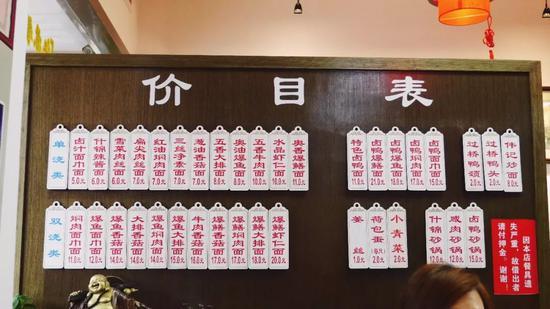 价目表
单浇类
卤汁面巾 5.0元
什锦辣酱 6.0元
雪菜肉丝 6.0元
扁尖肉丝 7.0元
红油焖肉 7.0元
三丝净素 7.0元
葱油香菇 7.0元
五香大排 8.0元
奥油爆鱼 8.0元
五香牛肉 10.0元
水晶虾仁 10.0元
奥香爆鳝 11.0元
特色卤面 11.0元
卤鸭爆鳝 21.0元
卤鸭爆鱼 18.0元
卤鸭焖肉 17.0元
卤鸭面巾 15.0元
过桥鸭颈 2.0元
过桥鸭头 2.0元
伟记炒面 8.0元
双浇类
焖肉面巾 11.0元
爆鱼面巾 12.0元
爆鱼香菇 14.0元
爆鱼焖肉 14.0元
大排香菇 14.0元
牛肉香菇 16.0元
爆鳝香菇 17.0元
爆鳝焖肉 17.0元
爆鳝大排 18.0元
爆鳝虾仁 20.0元
姜丝 1.0元
荷包蛋 2.0元
小青菜 2.0元
什锦砂锅 12.0元
咸肉砂锅 12.0元
卤鸭砂锅 15.0元
因本店餐具遗
失严重,故借出者
请付押金。谢谢!